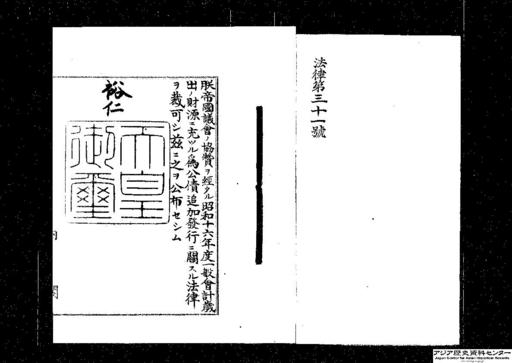 法律第三十一號
朕帝國議會ノ協贊ヲ經タル昭和十六年度一般會計歲
出ノ財源ニ充ツル爲公債追加發行ニ關スル法律
ヲ裁可シ茲ニ之ヲ公布セシム
裕仁
天皇御璽
内閣
アジア歴史資料センター
Japan Center for Asian Historical Records